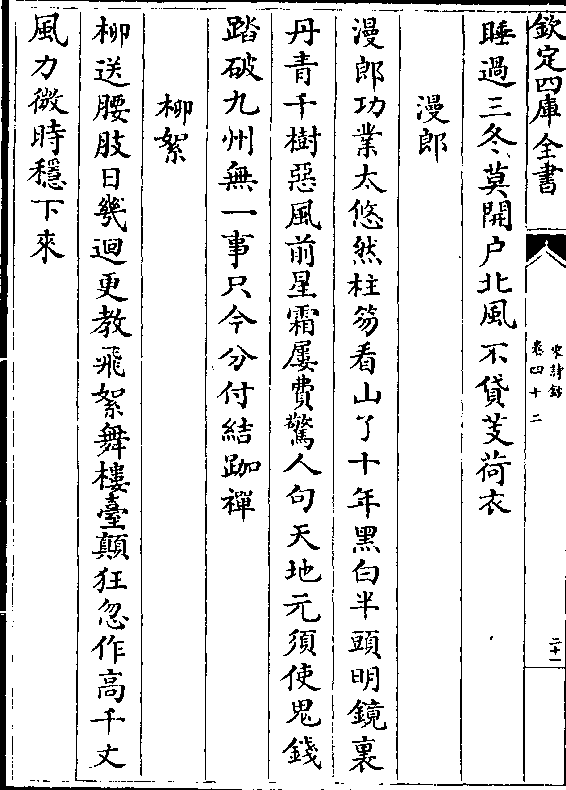 欽定四庫全書
宋詩鈔
卷四十二
二十一
睡過三冬莫開户北風不貸芰荷衣
漫郎
漫郎功業太悠然柱笏看山了十年黑白半頭明鏡裏
丹青千樹惡風前星霜屢費驚人句天地元須使鬼錢
踏破九州無一事只今分付結跏禪
柳絮
柳送腰肢日幾迴更教飛絮舞樓臺顛狂忽作高千丈
風力微時穩下來